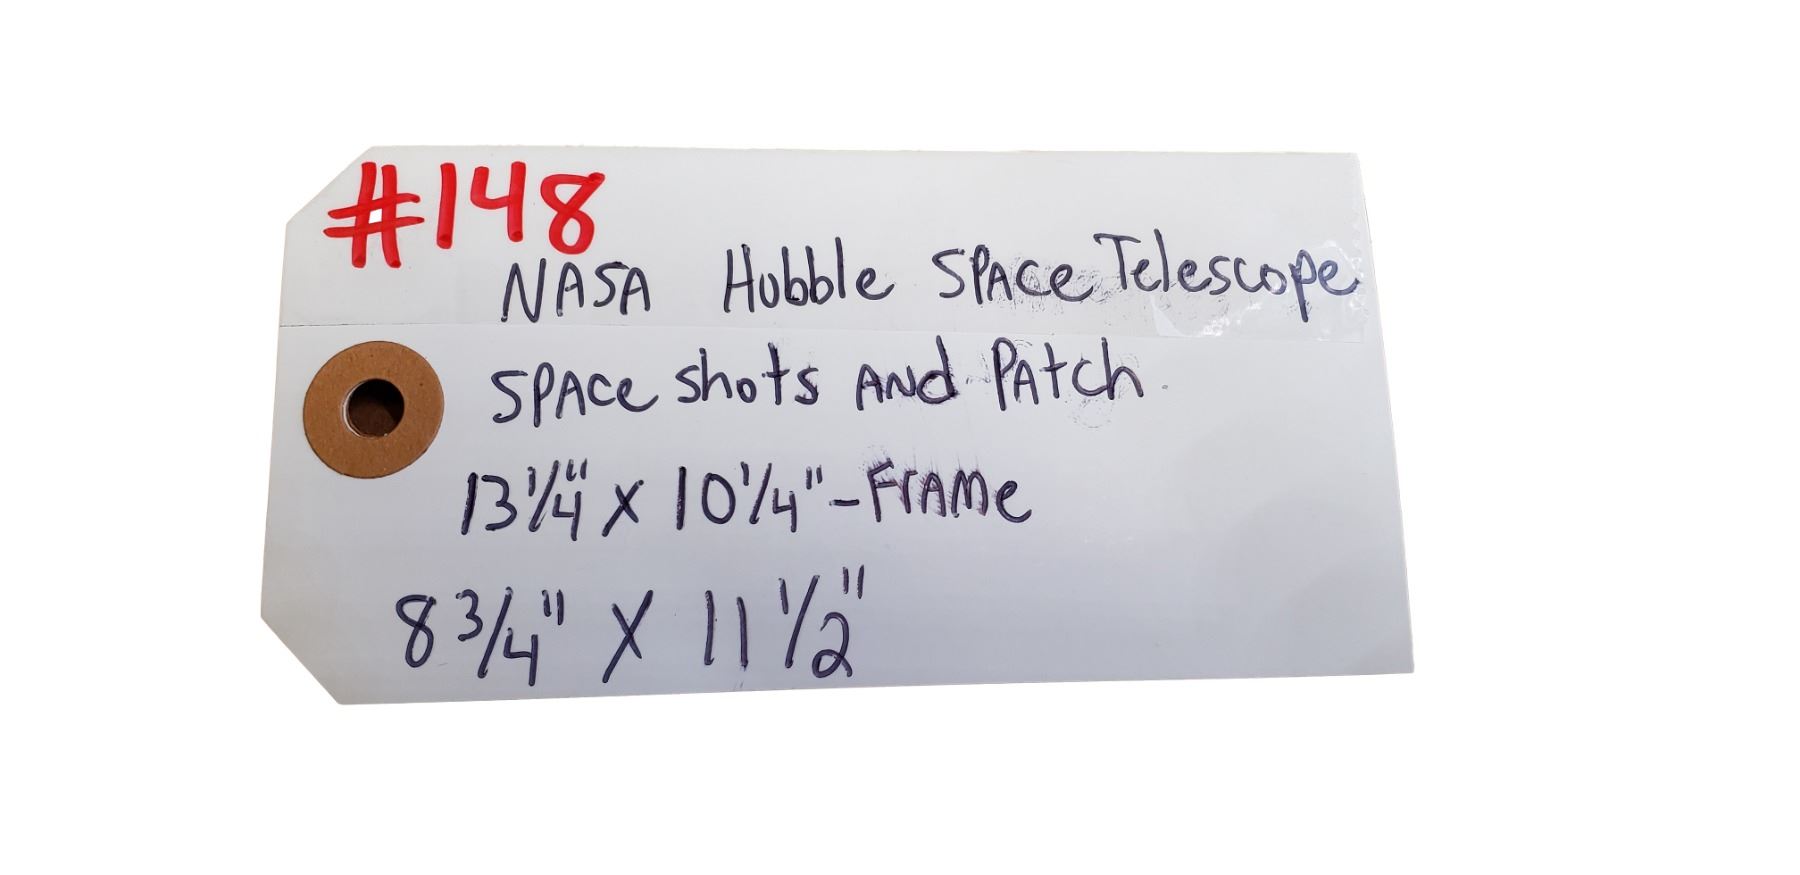 #148
NASA Hubble SPACe Telescope
SPACe shots AND PAtch
13 1/4" X 10 1/4" - FrAMe
8 3/4" X 11 1/2"